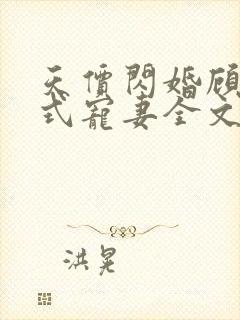 天價閃婚顾
式寵妻全文
洪晃